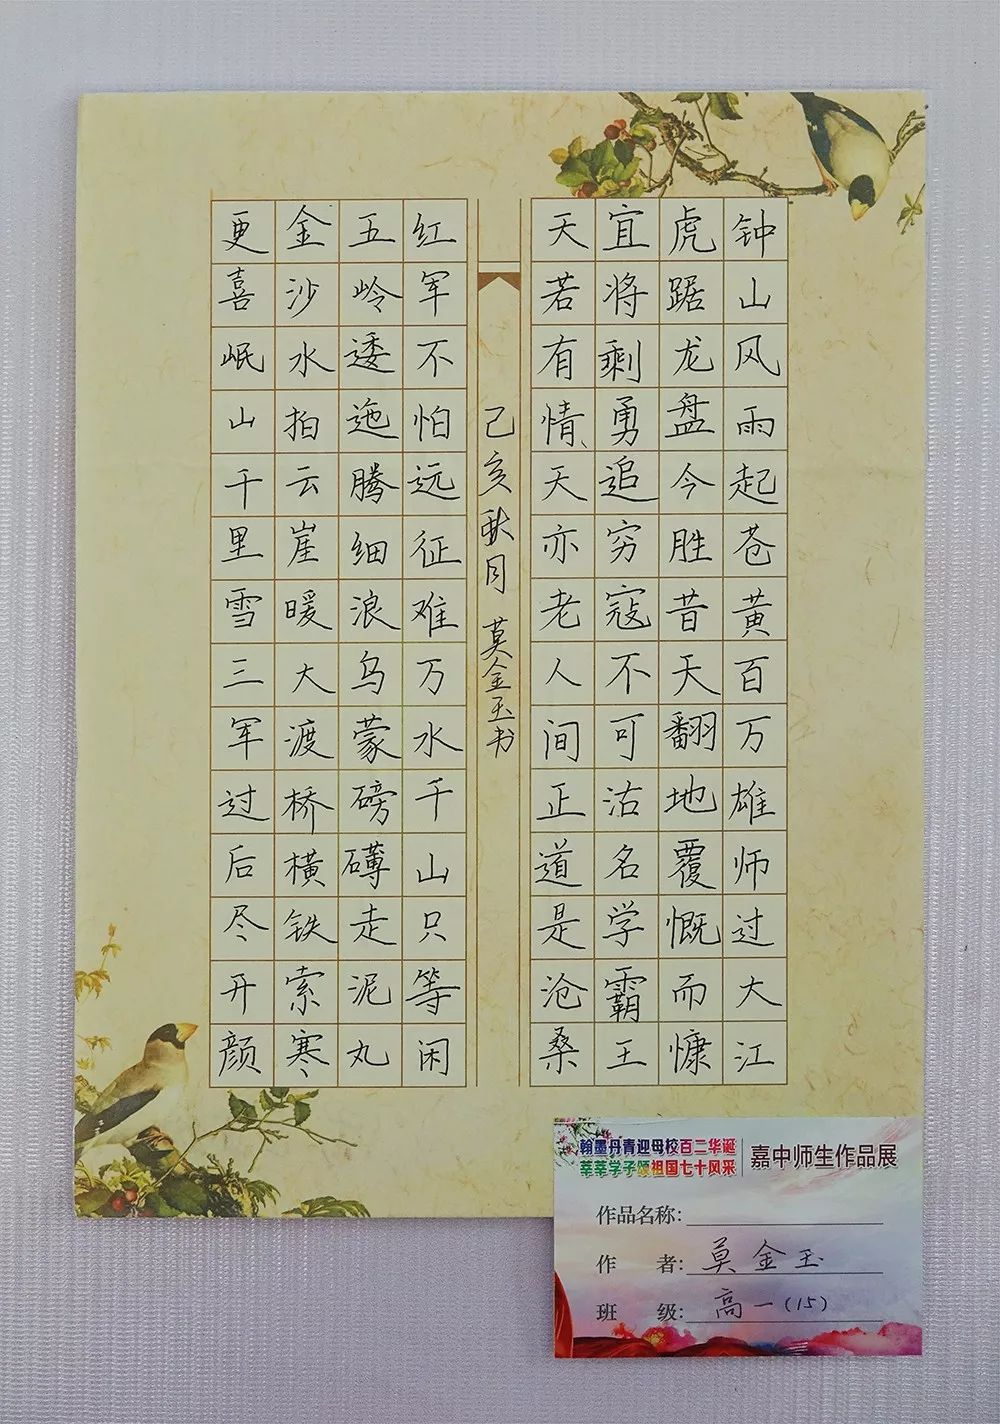 钟山风雨起苍黄百万雄师过大江
虎踞龙盘今胜昔天翻地覆慨而慷
宜将剩勇追穷寇不可沽名学霸王
天若有情天亦老人间正道是沧桑
己亥秋月 莫金玉书
红军不怕远征难万水千山只等闲
五岭逶迤腾细浪乌蒙磅礴走泥丸
金沙水拍云崖暖大渡桥横铁索寒
更喜岷山千里雪三军过后尽开颜
翰墨丹青迎母校百二华诞
莘莘学子颂祖国七十风采
嘉中师生作品展
作品名称:
作 者: 莫金玉
班 级: 高一(15)